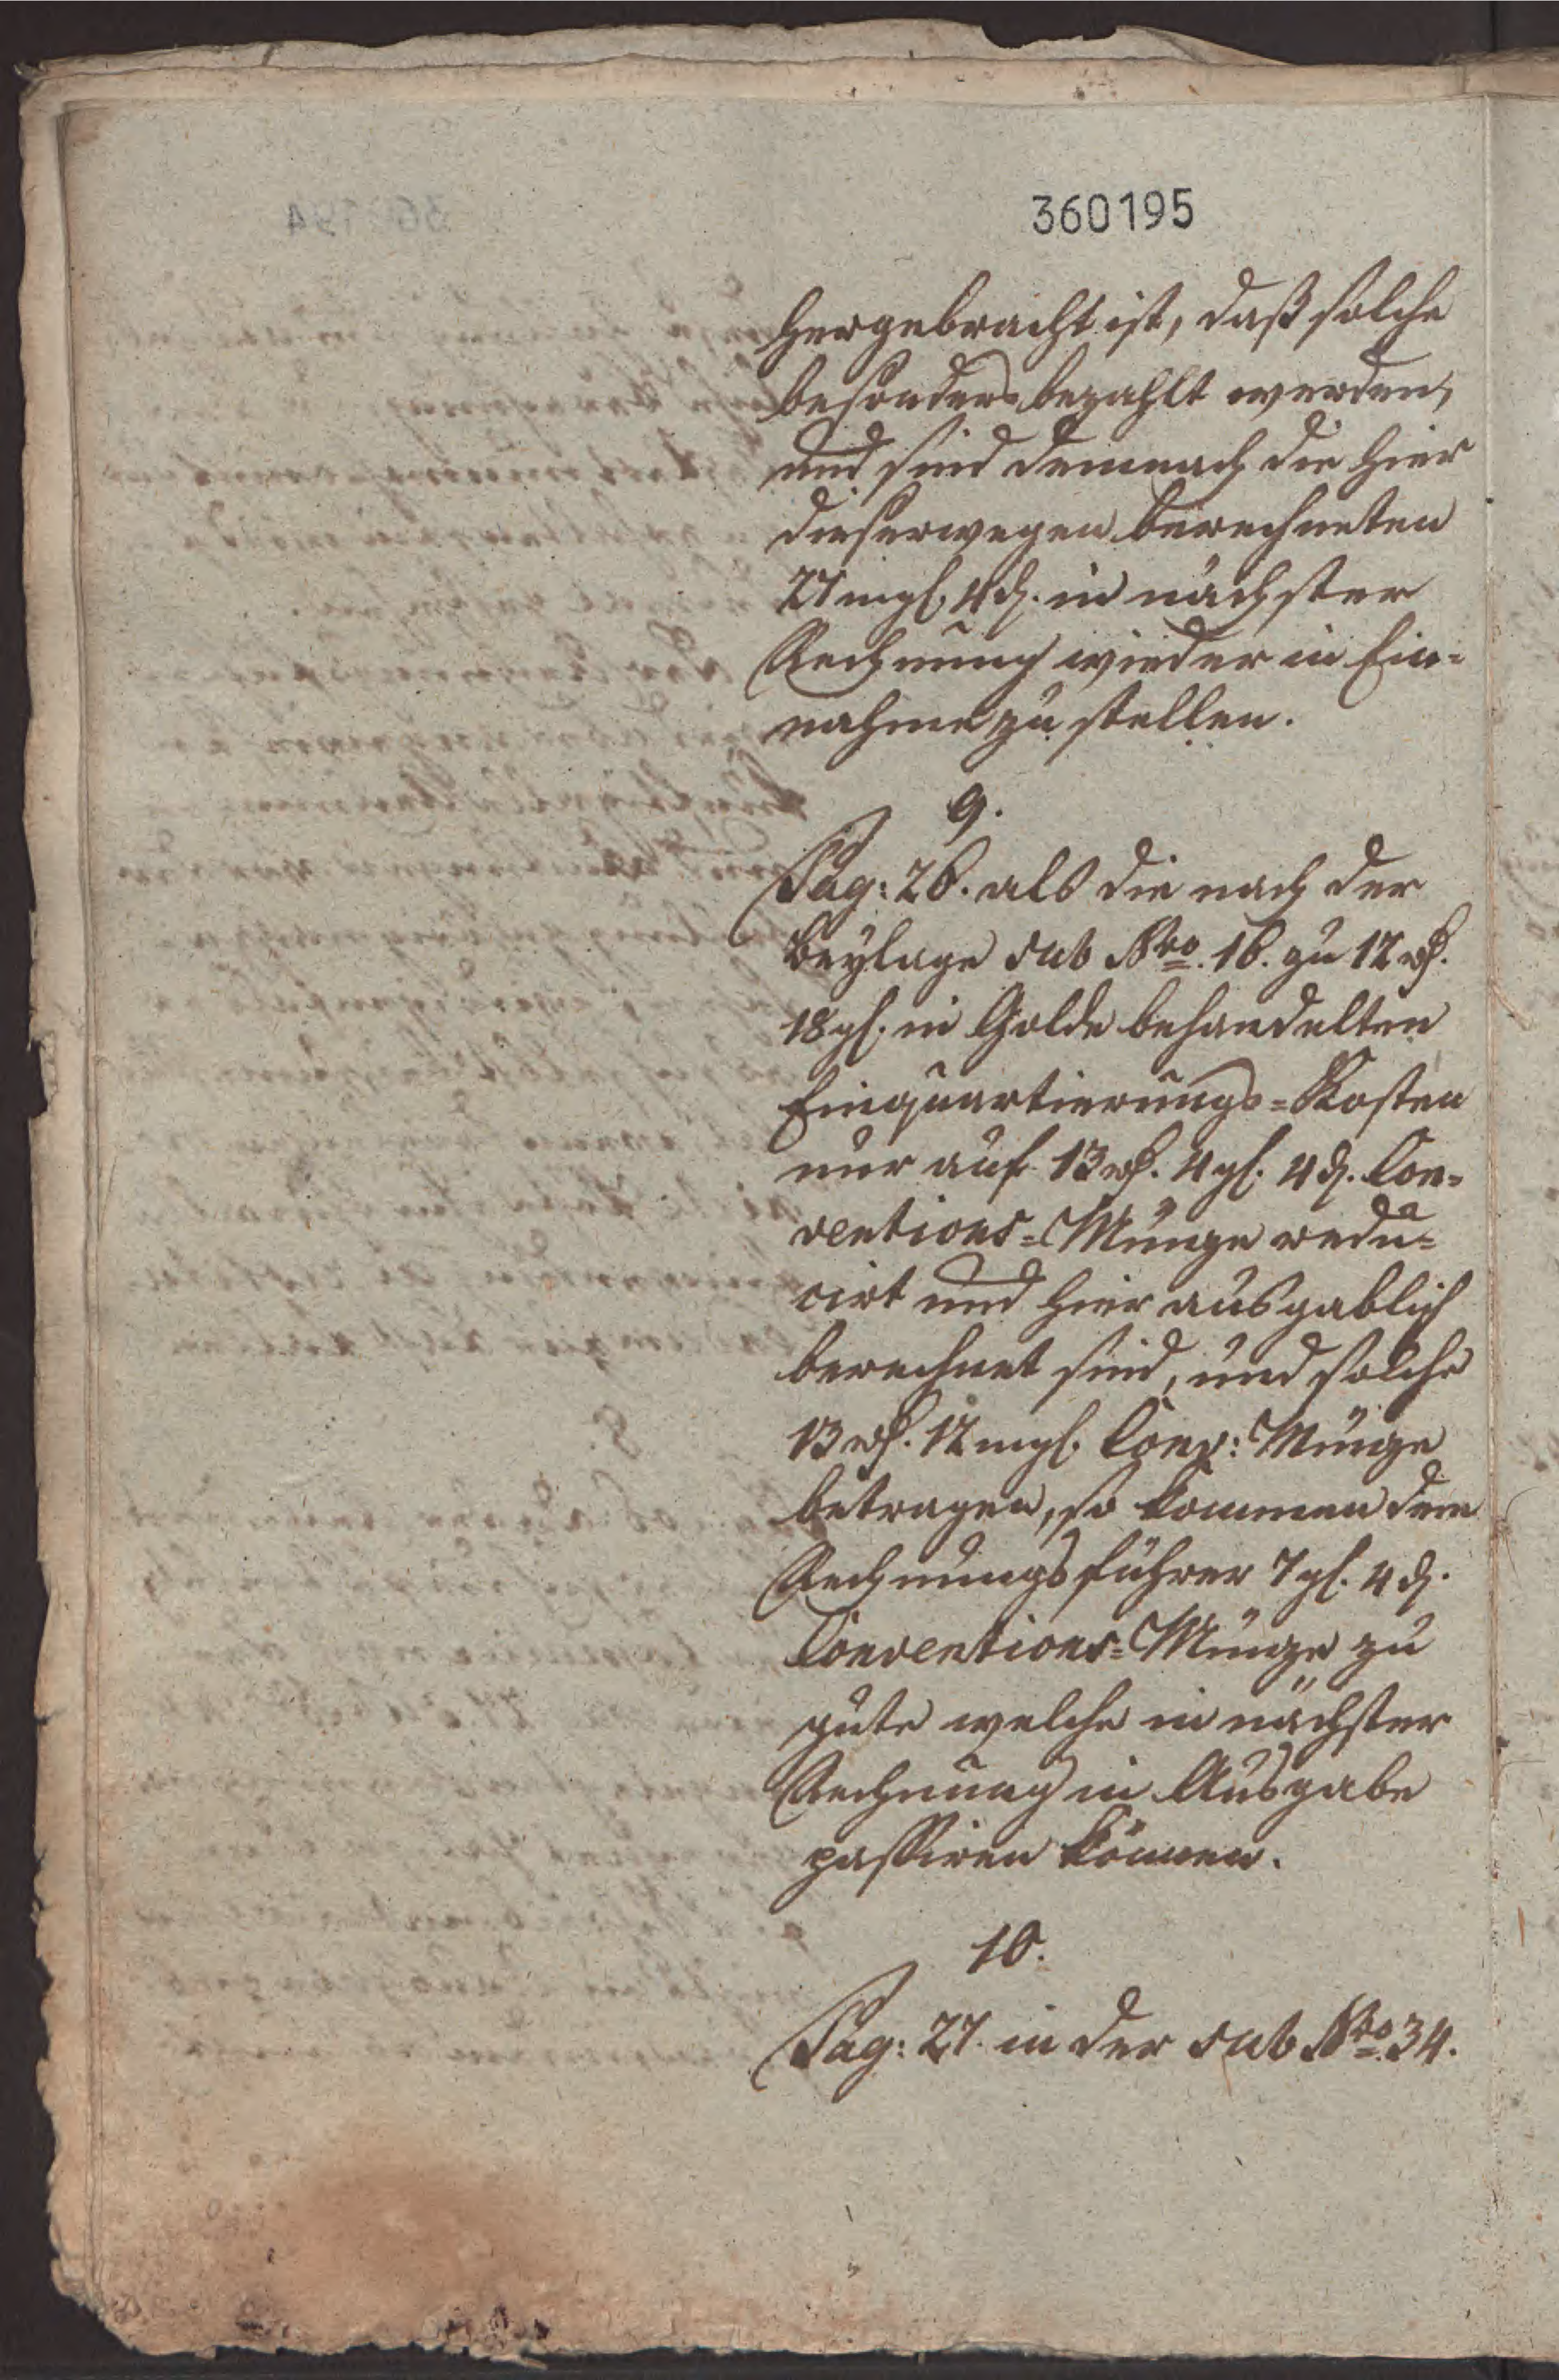 360195
hergebracht ist, daß solche
besonders bezahlt werden,
und sind demnach die hier
dieserwegen berechneten
27 mgl. 4 d. in nächster
Rechnung wieder in Ein-
nahme zu stellen.
9.
Pag: 26. als die nach der
Beylage sub Nro. 16. zu 12 rh.
18 gl. in Golde behandelten
Einquartierungs-Kosten
nur auf 13 rh. 4 gl. 4 d. Con-
ventions-Münze redu-
cirt und hier ausgablich
berechnet sind, und solche
13 rh. 12 mgl. Conv: Münze
betragen, so kommen dem
Rechnungsführer 7 gl. 4 d.
Conventions-Münze zu
gute welche in nächster
Rechnung in Ausgabe
passiren können.
10.
Pag: 27. in der sub Nro. 34.